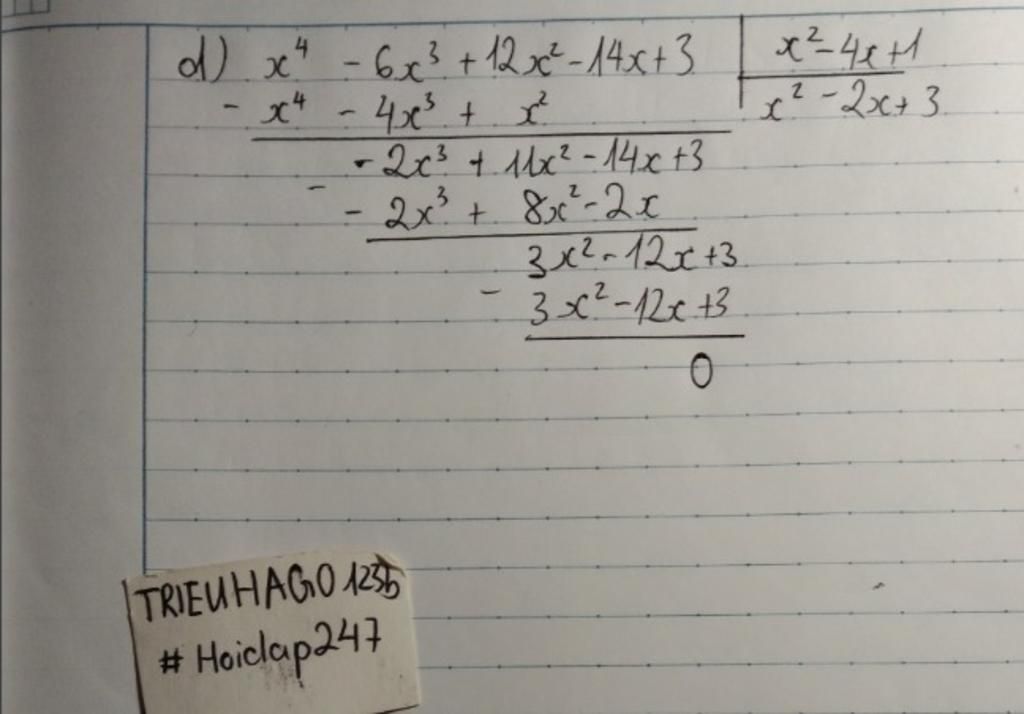 d) x⁴ - 6x³ + 12x² - 14x + 3 | x² - 4x + 1
- x⁴ - 4x³ + x² | x² - 2x + 3
- 2x³ + 11x² - 14x + 3
- - 2x³ + 8x² - 2x
3x² - 12x + 3
- 3x² - 12x + 3
0
TRIEUHAGO123b
# Hoidap247